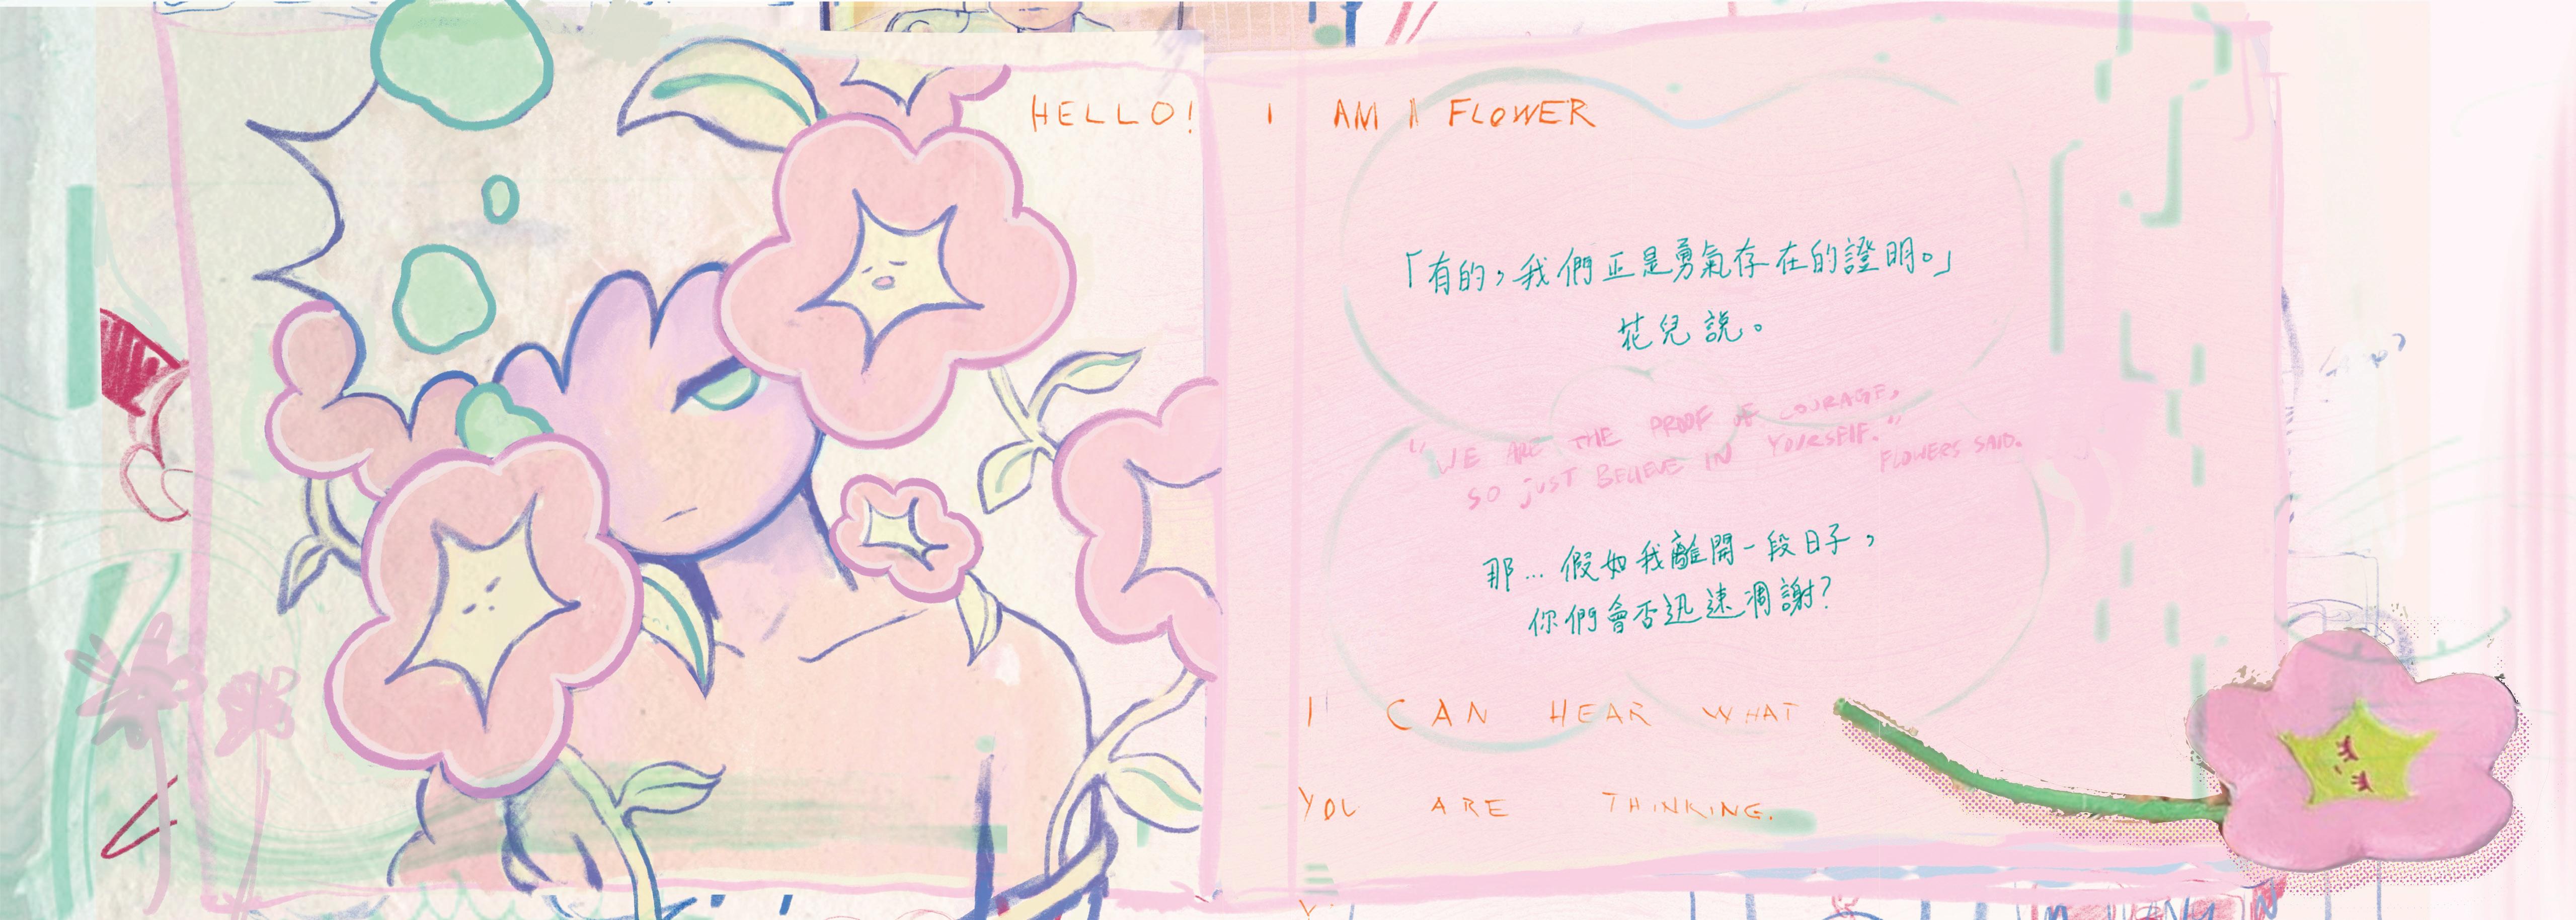 HELLO! I AM A FLOWER
「有的，我們正是勇氣存在的證明。」
花兒說。
"WE ARE THE PROOF OF COURAGE,
SO JUST BELIEVE IN YOURSELF."
FLOWERS SAID.
那...假如我離開一段日子，
你們會否迅速凋謝?
I CAN HEAR WHAT
YOU ARE THINKING.